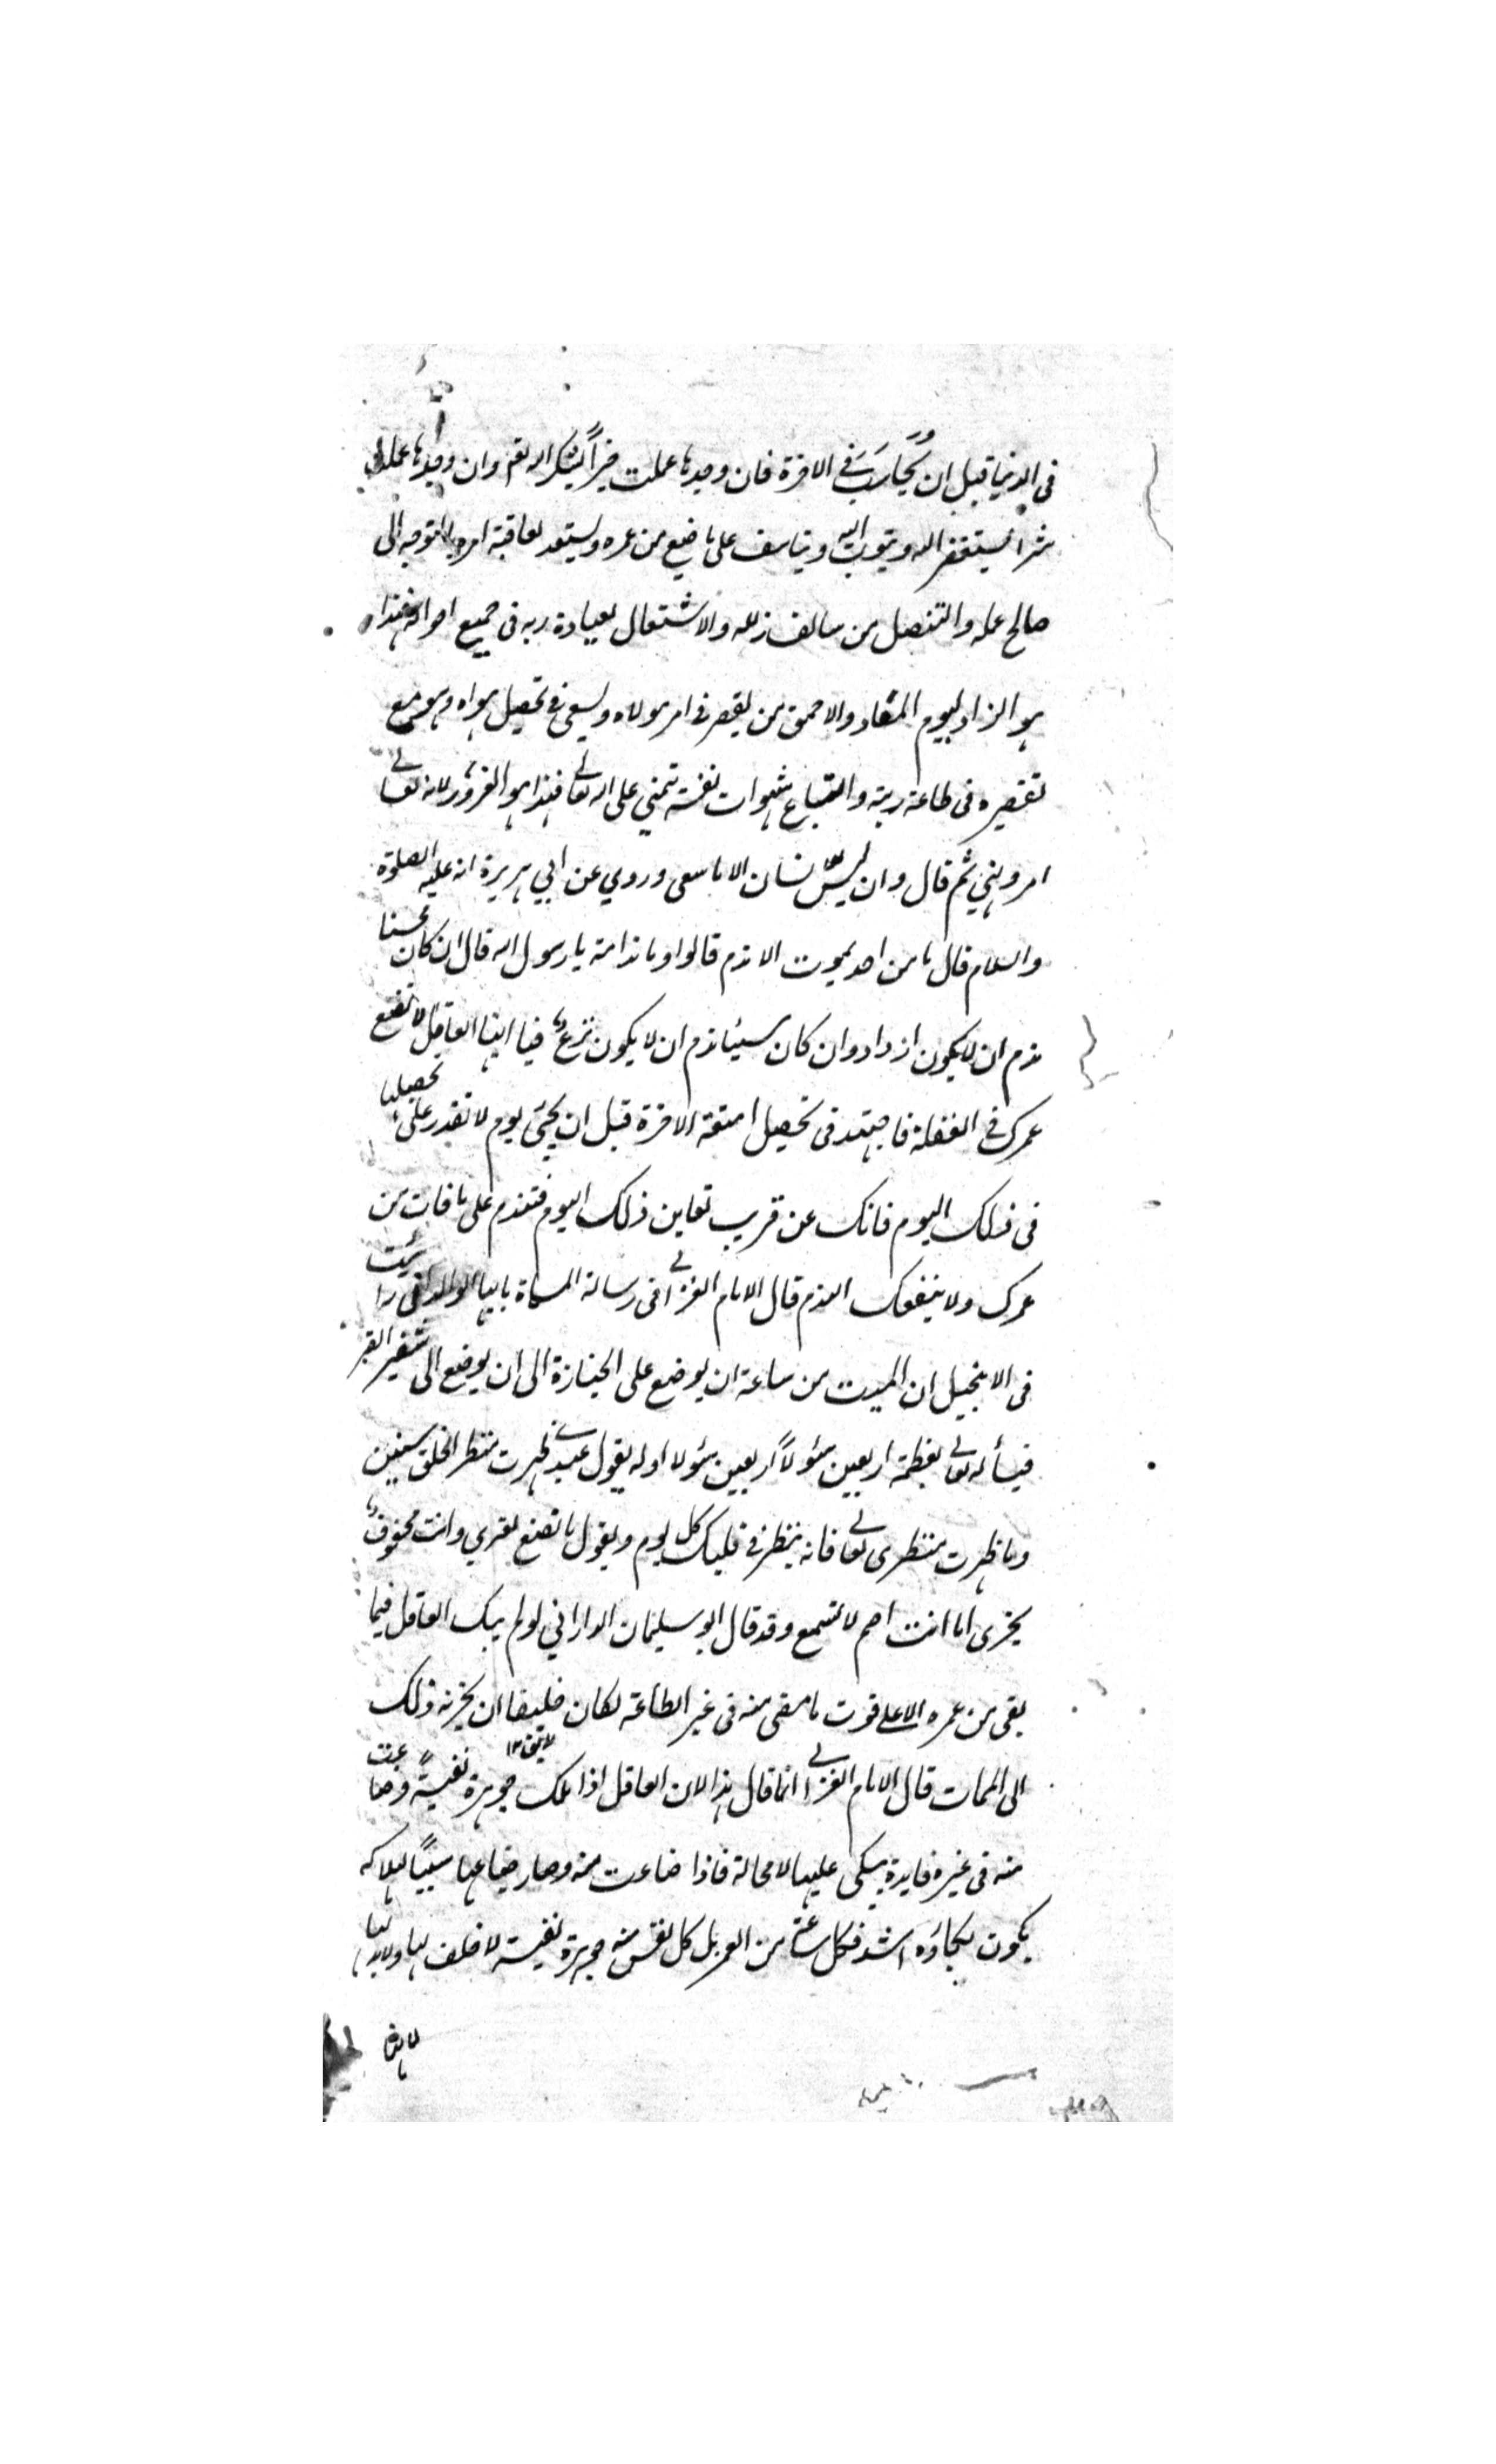 فى الدنيا قبل ان يحاسب فى الاخرة فان وجدها عملت خيراً يشكر الله تع وان وجدها عملت
شرا يستغفر الله ويتوب اليه ويتاسف على ما ضيع من عمره ويستعد لعاقبة امره بالتوجه الى
صالح عمله والتنصل من سالف زلله والاشتغال بعبادة ربه فى جميع احواله فهذا
هو الزاد ليوم المعاد والاحمق من يقصر فى امر مولاه ويسعى فى تحصيل هواه وهو مع
تقصيره فى طاعة ربه واتباع شهوات نفسه يتمنى على الله تعالى فهذا هو الغرور لانه تعالى
امر ونهى ثم قال وان ليس للانسان الا ما سعى وروي عن ابي هريرة انه عليه الصلوة
والسلام قال ما من احد يموت الا ندم قالوا وما ندامته يا رسول الله قال ان كان محسنا
ندم ان لا يكون ازداد وان كان سيئا ندم ان لا يكون نزع فيا ايها العاقل لا تضيع
عمرك فى الغفلة فاجتهد فى تحصيل امتعة الاخرة قبل ان يجئ يوم لا تقدر على تحصيلها
فى ذلك اليوم فانك عن قريب تعاين ذلك اليوم فتندم على ما فات من
عمرك ولا ينفعك الندم قال الامام الغزالى فى رسالة المسماة بايها الولد انى رايت
فى الانجيل ان الميت من ساعة ان يوضع على الجنازة الى ان يوضع الى شفير القبر
فيسأله تعالى بعظمة اربعين سؤلاً اربعين سؤلا اوله يقول عبدى طهرت منظر الخلق سنين
وما طهرت منظرى تعالى فانه ينظر فى قلبك كل يوم ويقول ما تصنع لغيري وانت محفوف
بخيرى اما انت اصم لا تسمع وقد قال ابو سليمان الداراني لو لم يبك العاقل فيما
بقى من عمره الا على فوت ما مضى منه فى غير الطاعة لكان خليقا ان يحزنه ذلك
لايق ١٢
الى الممات قال الامام الغزالى انما قال هذا لان العاقل اذا ملك جوهرة نفيسة وضاعت
منه فى غير فايدة يبكى عليها لا محالة فاذا ضاعت منه وصار ضياعها سبباً لهلاكه
يكون بكاؤه اشد فكل ساعة من العمر بل كل نفس منه جوهرة نفيسة لا خلف لها ولا بدل لها